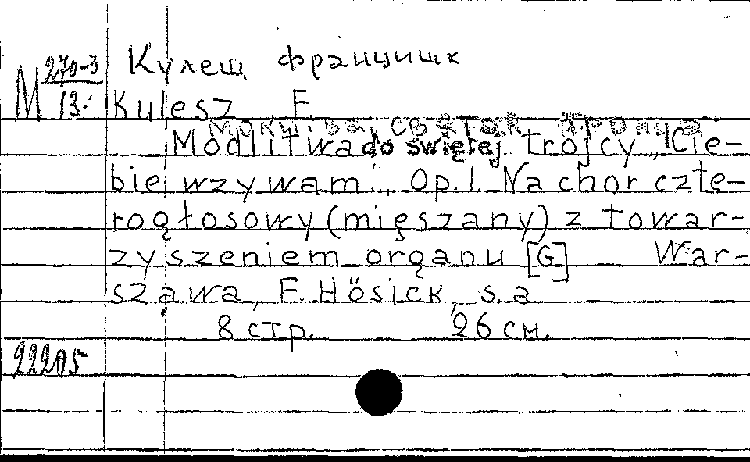 М 270-3
13.
Кулеш францишк
Kulesz, F.
Молитва святой троице
Modlitwa do świętej trójcy "Cie-
bie wzywam". Op. 1. Na chor czte-
rogłosowy (mięszany) z towar-
zyszeniem organu [G] War-
szawa, F. Hösick, s.a
8 стр. 26 см.
22205